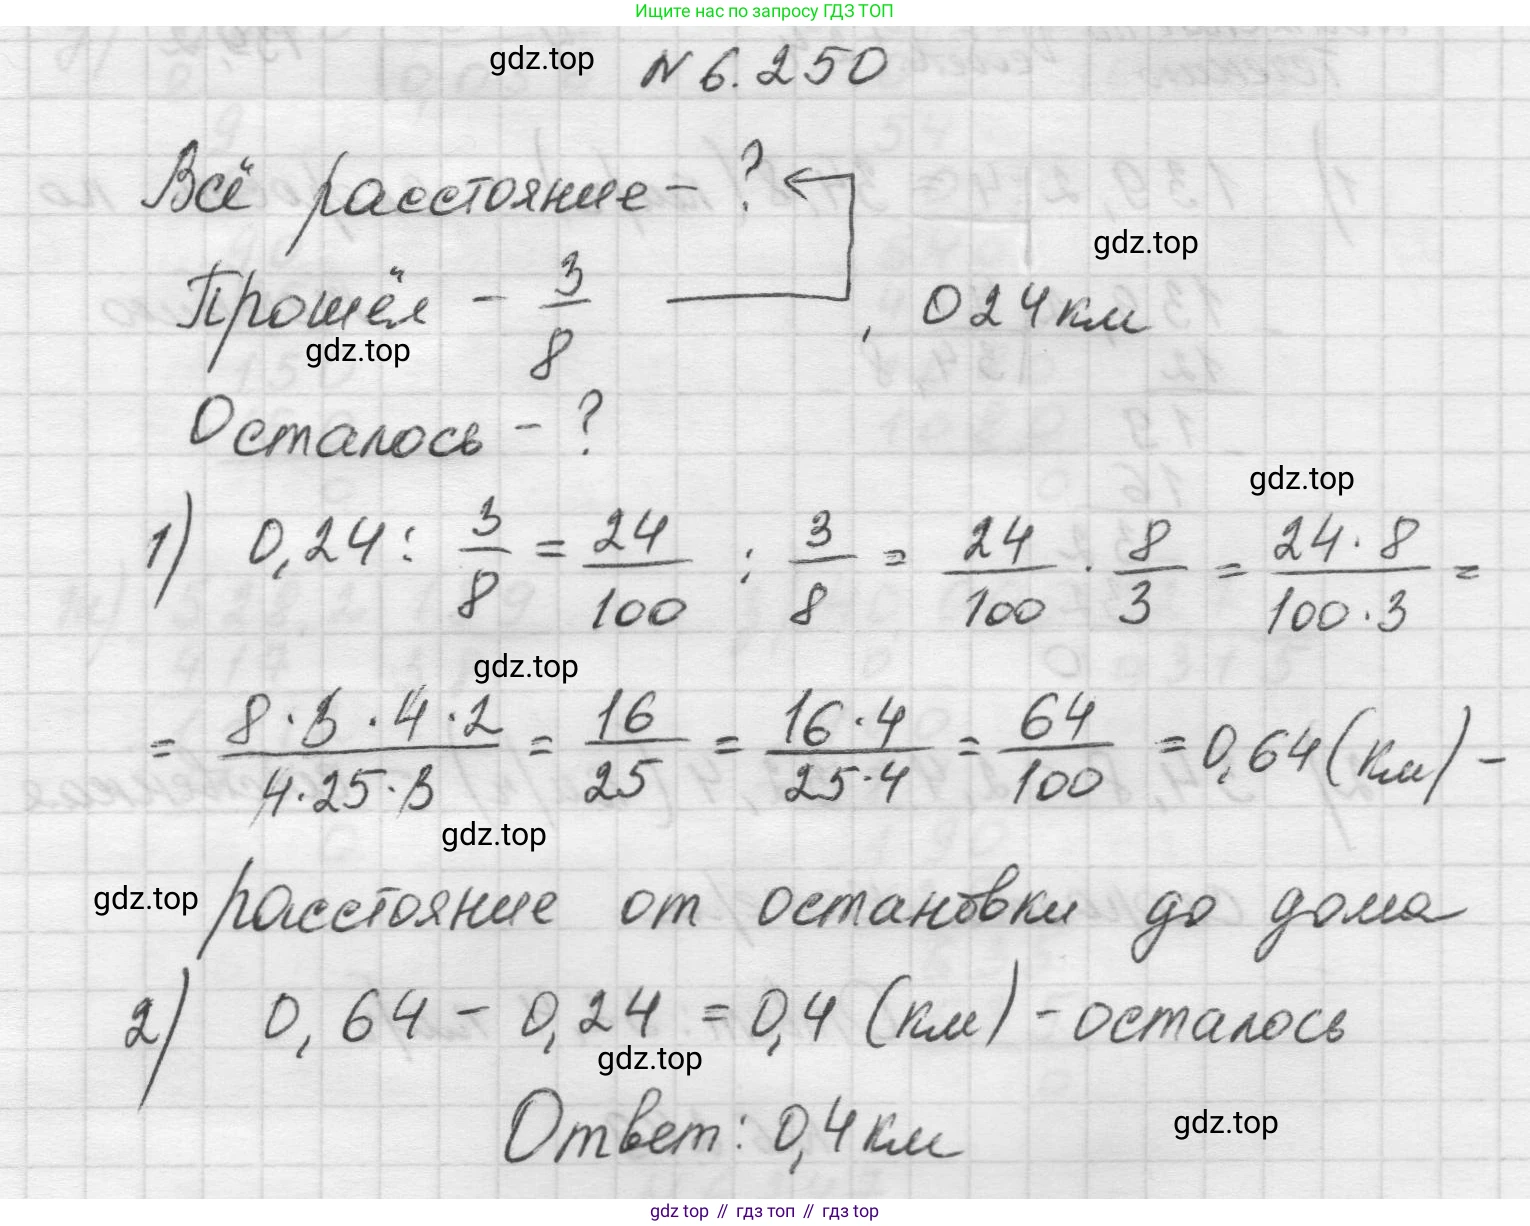 Ищите нас по запросу ГДЗ ТОП
gdz.top
N 6.250
Всё расстояние - ?
gdz.top
Прошёл - 3/8 , 0 24 км
gdz.top
Осталось - ?
gdz.top
1) 0,24 : 3/8 = 24/100 : 3/8 = 24/100 · 8/3 = 24 · 8/100 · 3 =
gdz.top
= 8 · 3 · 4 · 2/4 · 25 · 3 = 16/25 = 16 · 4/25 · 4 = 64/100 = 0,64 (км) -
gdz.top
gdz.top
расстояние от остановки до дома
2) 0,64 - 0,24 = 0,4 (км) - осталось
gdz.top
Ответ: 0,4 км
gdz.top
gdz.top // гдз топ // гдз top